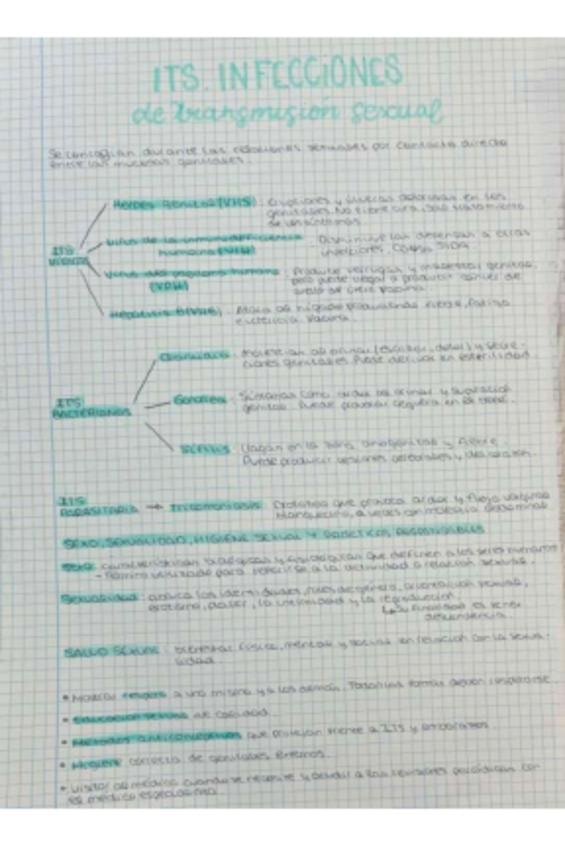 ITS. INFECCIONES
de transmisión sexual
Se contagian durante las relaciones sexuales por contacto directo
entre las mucosas genitales.
Herpes genital (VHS): Erupciones y úlceras dolorosas en los
genitales. No tiene cura, solo tratamiento
de los síntomas.
ITS
VÍRICAS
Virus de la inmunodeficiencia
humana (VIH)
Disminuye las defensas a otras
infecciones. Causa SIDA.
Virus del papiloma humano
(VPH)
: Produce verrugas y molestias genitales,
pero puede llegar a producir cáncer de
Vacuna.
Hepatitis B (VHB): Ataca al hígado produciendo fiebre, fatiga,
ictericia. Vacuna.
Clamidiasis: Molestias al orinar (escozor, dolor) y secre-
ciones genitales. Puede derivar en esterilidad.
ITS
BACTERIANAS
Gonorrea: Síntomas como ardor al orinar y supuración
genital. Puede provocar ceguera en
Sífilis: Llagas en la zona anogenital y fiebre.
Puede producir lesiones cerebrales y del corazón.
ITS
PARASITARIA → Tricomoniasis: Protozoo que provoca ardor y flujo vaginal
blanquecino, a veces con molestia abdominal
SEXO, SEXUALIDAD, HIGIENE SEXUAL Y PRÁCTICAS RESPONSABLES
Sexo: características biológicas y fisiológicas que definen a los seres humanos
- Término utilizado para referirse a la actividad o relación sexual.
Sexualidad: abarca las identidades, roles de género, orientación sexual,
erotismo, placer, la intimidad y la reproducción.
↳ Su finalidad es tener
descendencia.
SALUD SEXUAL: bienestar físico, mental y social en relación con la sexua-
lidad
• Mostrar respeto a uno mismo y a los demás. Todas las formas deben respetarse.
• Educación sexual de calidad.
• Métodos anticonceptivos que protejan frente a ITS y embarazos
• Higiene correcta de genitales externos.
• Visitar al médico cuando se necesite y acudir a las revisiones periódicas con
el médico especialista.